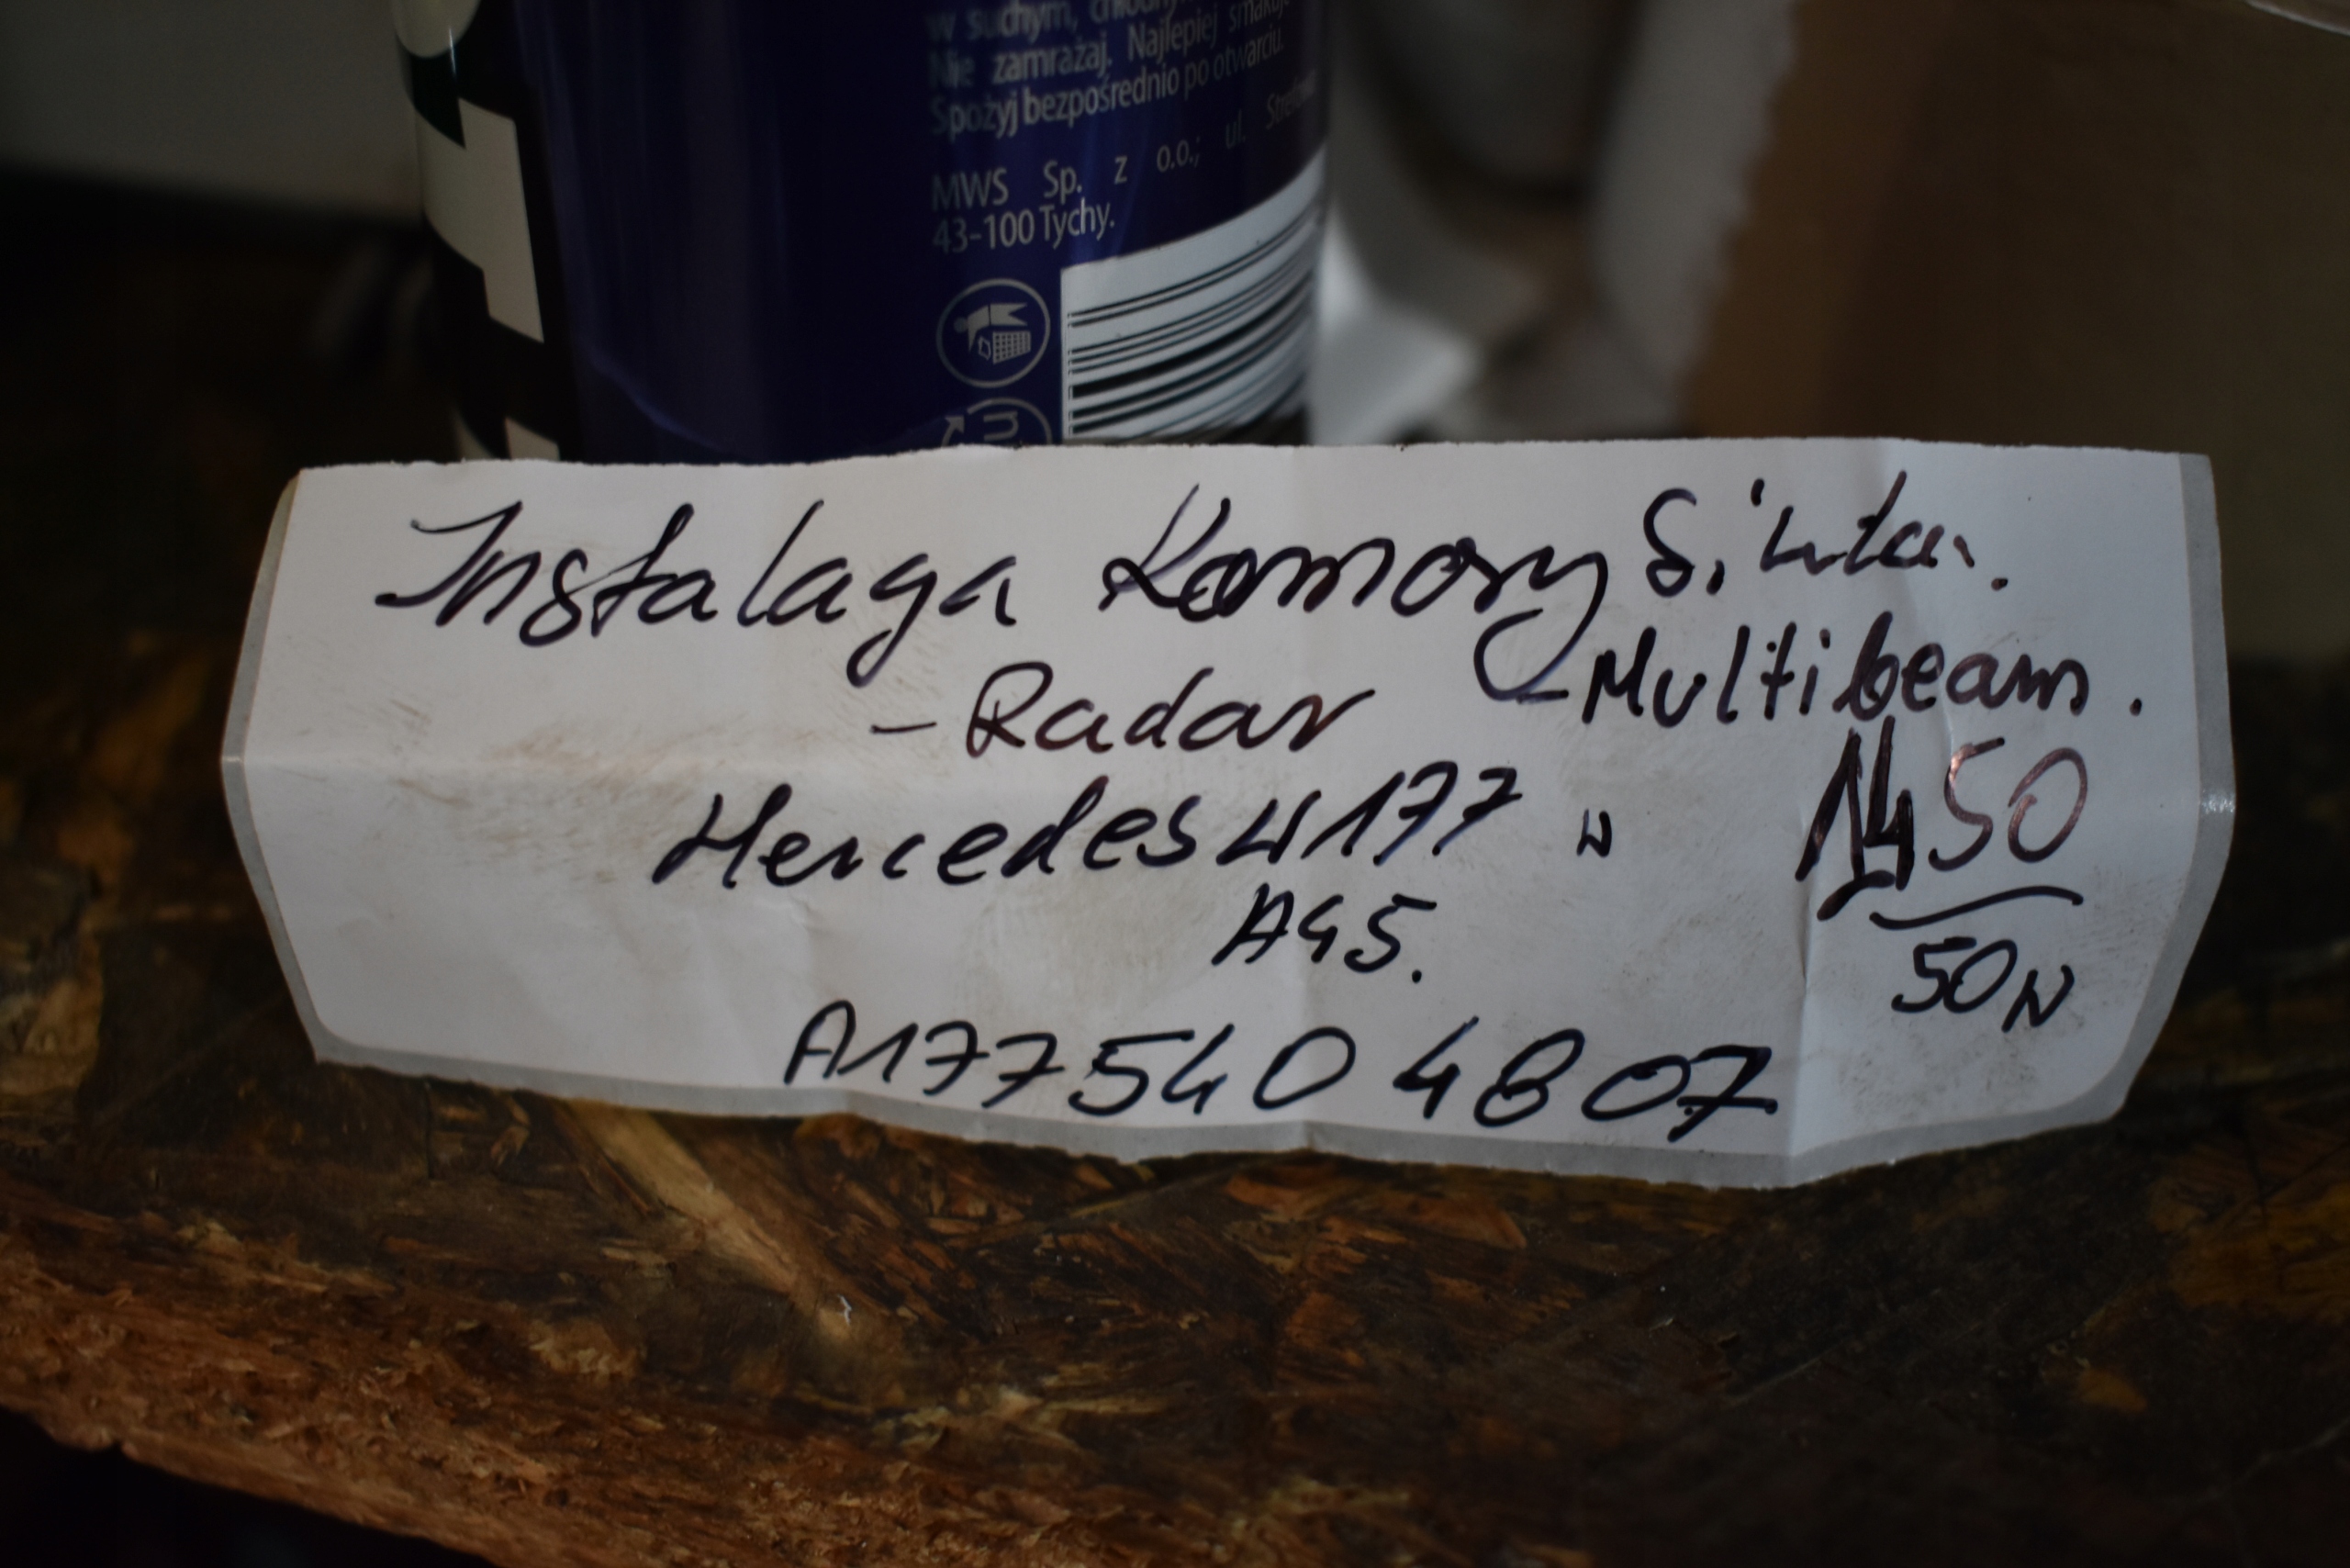 w suchym,
Nie zamrażaj. Najlepiej smakuje
Spożyj bezpośrednio po otwarciu.
MWS Sp. z o.o.; ul.
43-100 Tychy.
Instalacja Komory
- Radar - Multibeam.
Mercedes W177 50
A45.
50 N
A177 540 4807